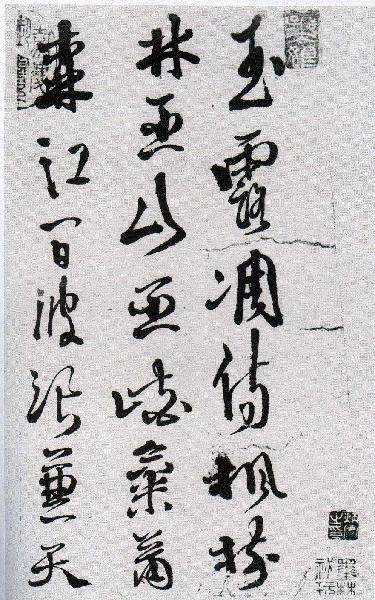 玉露凋傷楓樹
林巫山巫峽氣蕭
森江間波浪兼天